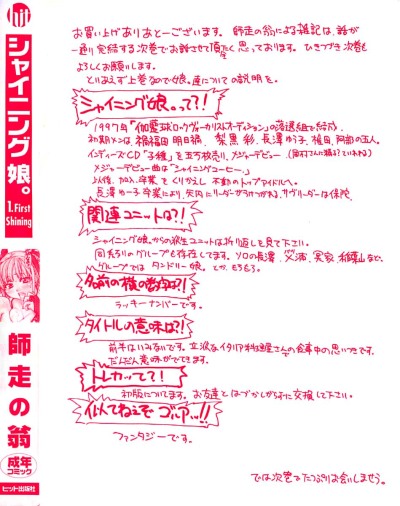 シャイニング娘。
1.First
Shining
師走の翁
成年
コミック
ヒット出版社
お買い上げありあとーございます。師走の翁による雑記は、話が
一通り完結する次巻でお話させて頂たく思っております。ひきつづき次巻も
よろしくお願いします。
とりあえず上巻なので娘。達についての説明を。
シャイニング娘。って?!
1997年「伽藍球ロックヴォーカリストオーディション」の落選組で結成。
初期メンは、福田 明日禍、梨黒 彩、長澤 ゆう子、植田、阿部の五人。
インディーズCD「子種」を五万枚売り、メジャーデビュー。
メジャーデビュー曲は「シャイニングコーヒー」
以後、加入、卒業をくりかえし 不動のトップアイドルへ。
長澤ゆー子 卒業により、矢内にリーダーがうけつがれる。サブリーダーは保院。
関連ユニットは?!
シャイニング娘。からの派生ユニットは折り返しを見て下さい。
グループでは タンドリー娘。とか、もろもろ。
名前の横の数字は?!
ラッキーナンバーです。
タイトルの意味は?!
前半はいみないです。立派なイタリア料理屋さんでの食事中の思いつきです。
だんだん意味がでてきます。
トレカって?!
初版についてます。お友達とはづかしがらずに交換して下さい。
似てねえぞゴルアッ!!
ファンタジーです。
では次巻でたっぷりお会いしませう。